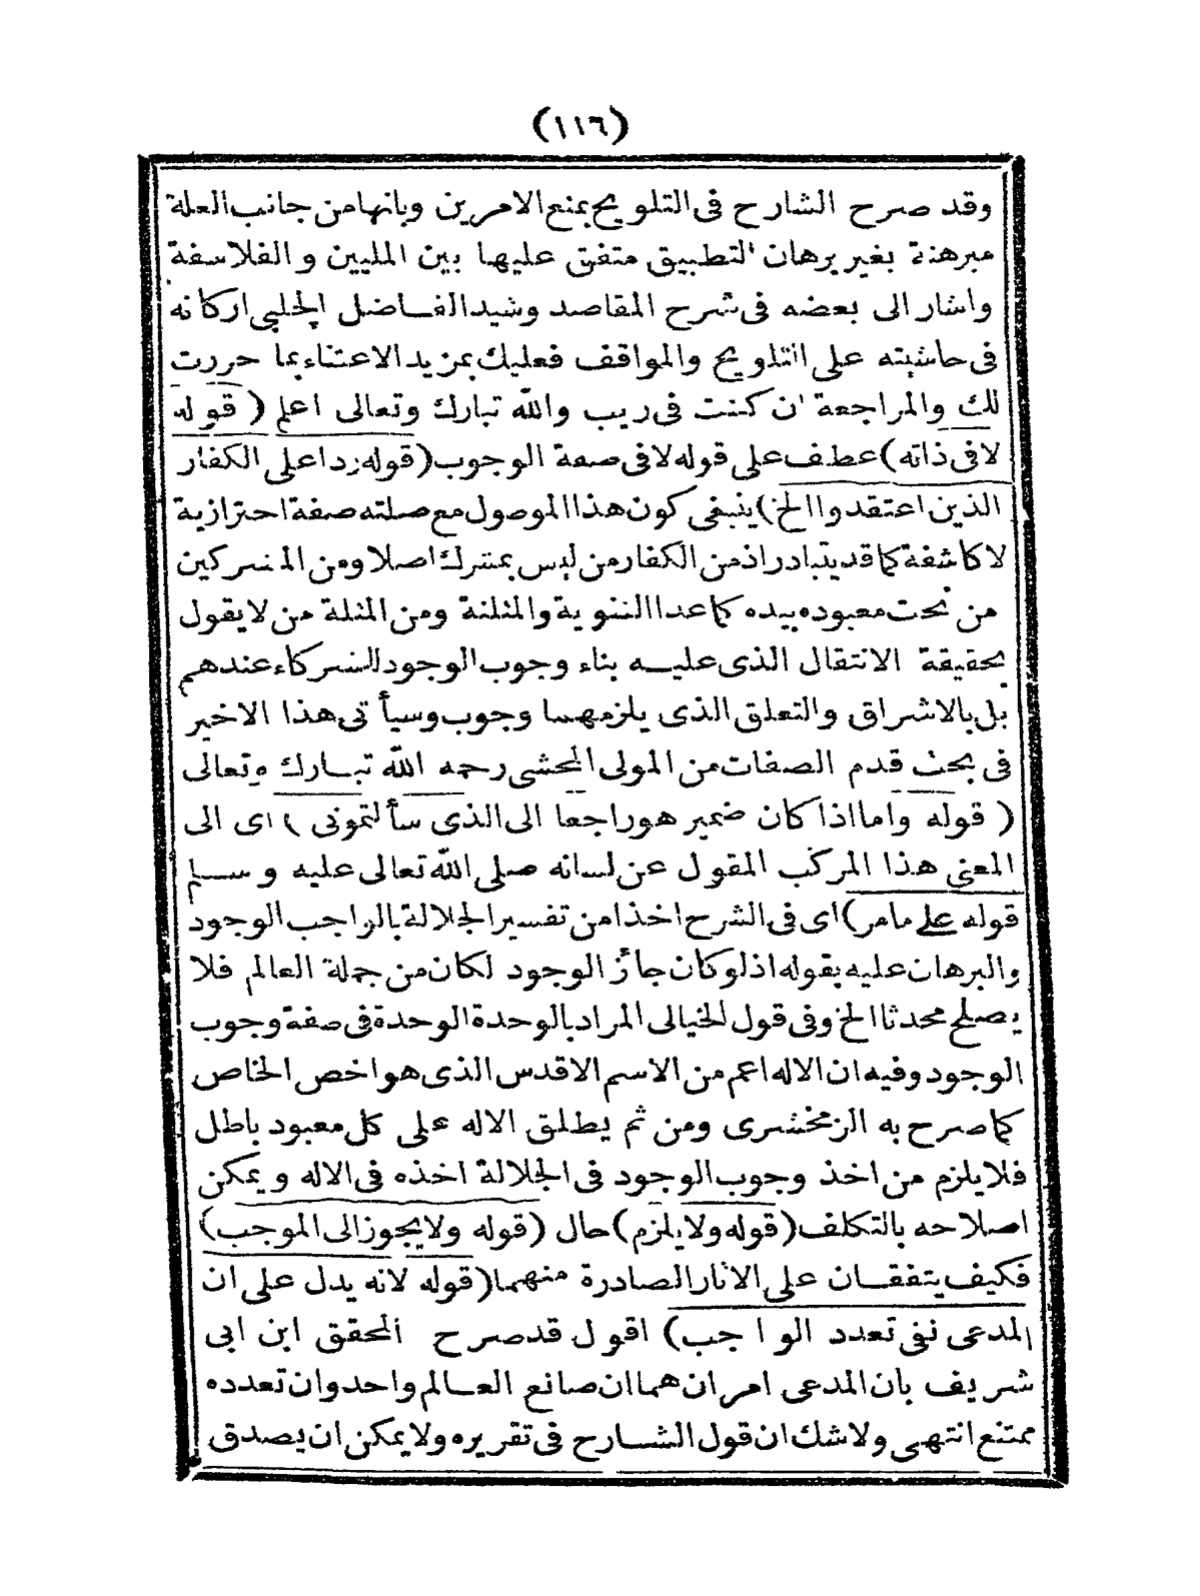 (١١٦)
وقد صرح الشارح فى التلويح بمنع الامرين وبانها من جانب العلة
مبرهنة بغير برهان التطبيق متفق عليها بين المليين والفلاسفة
واشار الى بعضه فى شرح المقاصد وشيد الفاضل الجلبى اركانه
فى حاشيته على التلويح والمواقف فعليك بمزيد الاعتناء بما حررت
لك والمراجعة ان كنت فى ريب والله تبارك وتعالى اعلم (قوله
لا فى ذاته) عطف على قوله لا فى صفة الوجوب (قوله ردا على الكفار
الذين اعتقدوا الخ) ينبغى كون هذا الموصول مع صلته صفة احترازية
لا كاشفة كما قد يتبادر اذ من الكفار من ليس بمشرك اصلا ومن المشركين
من نحت معبوده بيده كما عدا الثنوية والمثلثة ومن المثلثة من لا يقول
بحقيقة الانتقال الذى عليه بناء وجوب الوجود للشركاء عندهم
بل بالاشراق والتعلق الذى يلزمهما وجوب وسيأتى هذا الاخير
فى بحث قدم الصفات من المولى المحشى رحمه الله تبارك وتعالى
(قوله واما اذا كان ضمير هو راجعا الى الذى سألتمونى) اى الى
المعنى هذا المركب المقول عن لسانه صلى الله تعالى عليه وسلم
قوله على ما مر) اى فى الشرح اخذا من تفسير الجلالة بالواجب الوجود
والبرهان عليه بقوله اذ لو كان جائز الوجود لكان من جملة العالم فلا
يصلح محدثا الخ وفى قول الخيالى المراد بالوحدة الوحدة فى صفة وجوب
الوجود وفيه ان الاله اعم من الاسم الاقدس الذى هو اخص الخاص
كما صرح به الزمخشرى ومن ثم يطلق الاله على كل معبود باطل
فلا يلزم من اخذ وجوب الوجود فى الجلالة اخذه فى الاله ويمكن
اصلاحه بالتكلف (قوله ولا يلزم) حال (قوله ولا يجوز الى الموجب)
فكيف يتفقان على الاثار الصادرة منهما (قوله لانه يدل على ان
المدعى نفى تعدد الواجب) اقول قد صرح المحقق ابن ابى
شريف بان المدعى امران هما ان صانع العالم واحد وان تعدده
ممتنع انتهى ولا شك ان قول الشارح فى تقريره ولا يمكن ان يصدق